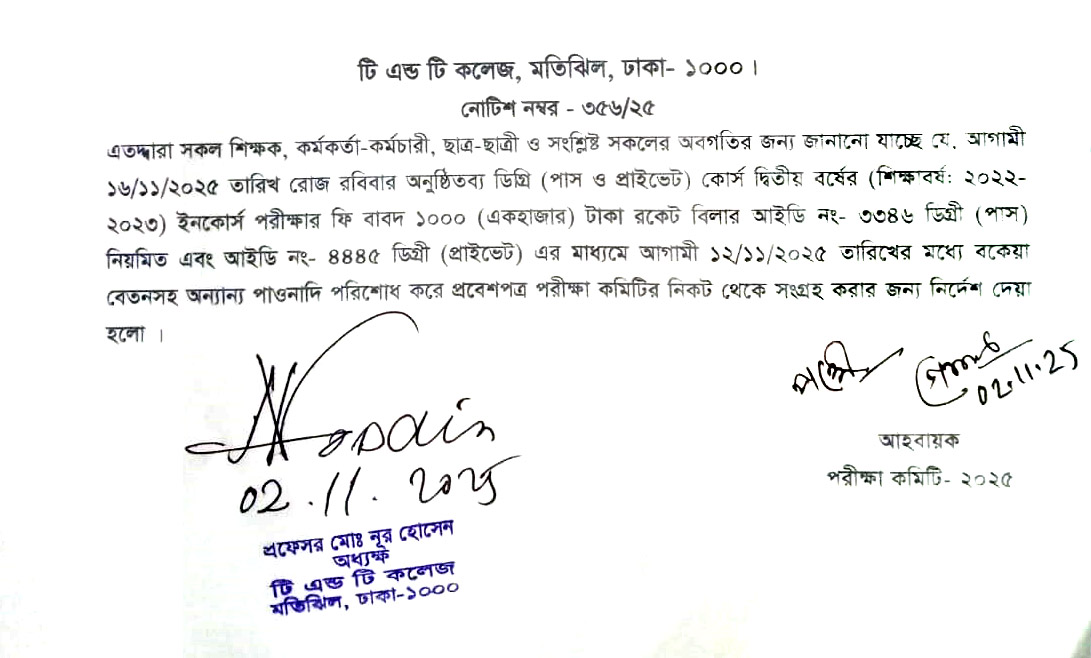 টি এন্ড টি কলেজ, মতিঝিল, ঢাকা- ১০০০।
নোটিশ নম্বর - ৩৫৬/২৫
এতদ্বারা সকল শিক্ষক, কর্মকর্তা-কর্মচারী, ছাত্র-ছাত্রী ও সংশ্লিষ্ট সকলের অবগতির জন্য জানানো যাচ্ছে যে, আগামী
১৬/১১/২০২৫ তারিখ রোজ রবিবার অনুষ্ঠিতব্য ডিগ্রি (পাস ও প্রাইভেট) কোর্স দ্বিতীয় বর্ষের (শিক্ষাবর্ষ: ২০২২-
২০২৩) ইনকোর্স পরীক্ষার ফি বাবদ ১০০০ (একহাজার) টাকা রকেট বিলার আইডি নং- ৩৩৪৬ ডিগ্রী (পাস)
নিয়মিত এবং আইডি নং- ৪৪৪৫ ডিগ্রী (প্রাইভেট) এর মাধ্যমে আগামী ১২/১১/২০২৫ তারিখের মধ্যে বকেয়া
বেতনসহ অন্যান্য পাওনাদি পরিশোধ করে প্রবেশপত্র পরীক্ষা কমিটির নিকট থেকে সংগ্রহ করার জন্য নির্দেশ দেয়া
হলো ।
02.11.25
02.11.2025
আহবায়ক
পরীক্ষা কমিটি- ২০২৫
প্রফেসর মোঃ নূর হোসেন
অধ্যক্ষ
টি এন্ড টি কলেজ
মতিঝিল, ঢাকা-১০০০